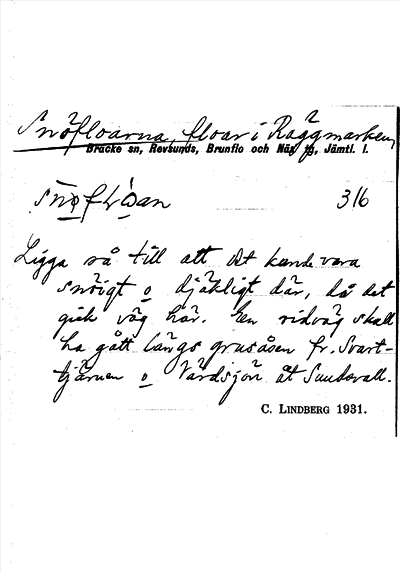 Snöfloarna, floar i Råggmarken,
Bräcke sn, Revsunds, Brunflo och Näs tg, Jämtl. l.
316
Ligga så till att det kunde vara
snöigt o djäkligt där, då det
gick väg här. En ridväg skall
ha gått längs grusåsen fr. Svart-
tjärnen o Värdsjön åt Sundsvall.
C. LINDBERG 1931.